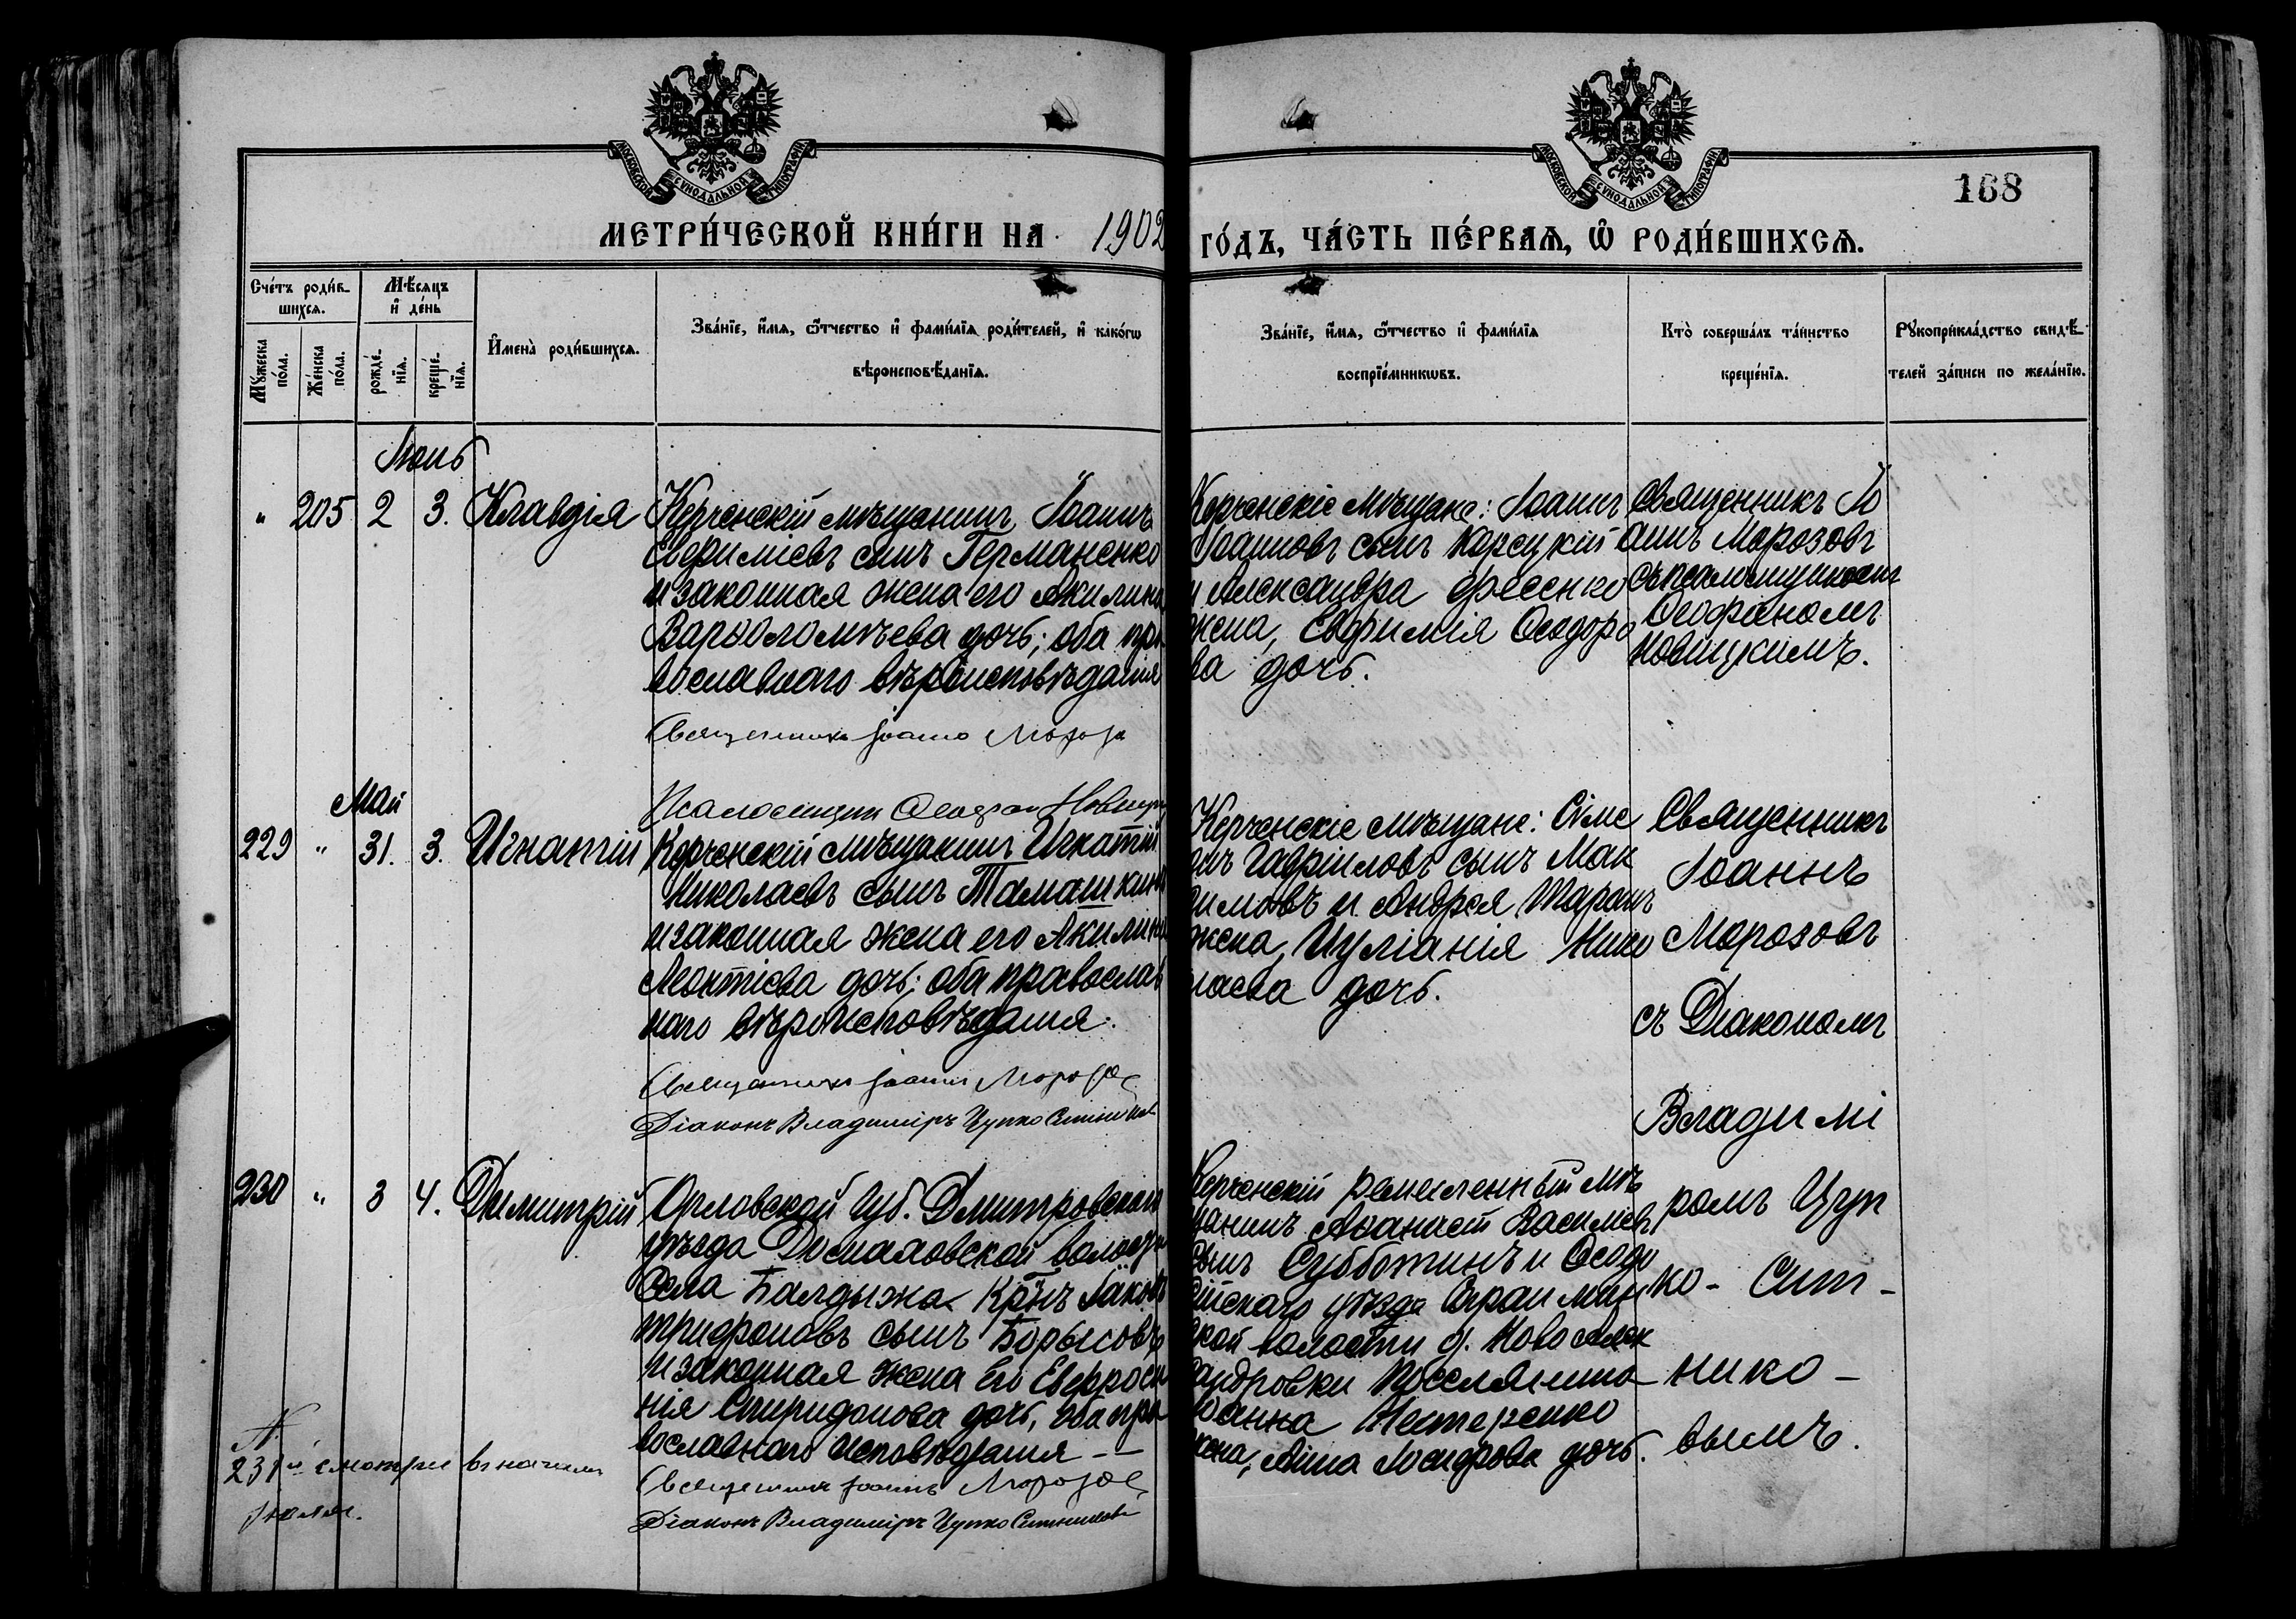 МОСКОВСКОЙ СѴНОДАЛЬНОЙ ТИПОГРАФІИ
МОСКОВСКОЙ СѴНОДАЛЬНОЙ ТИПОГРАФІИ
168
МЕТРИ́ЧЕСКОЙ КНИ́ГИ НА 1902
ГО́ДЪ, ЧА́СТЬ ПЕ́РВАѦ, Ѡ҆ РОДИ́ВШИХСѦ.
Сче́тъ роди́в-
шихсѧ.
Мѣ́сяцъ
и҆ де́нь
Мꙋ́жеска
по́ла.
Же́нска
по́ла.
рожде́-
нїѧ.
креще́-
нїѧ.
И҆мена̀ роди́вшихсѧ.
Зва́нїе, и҆́мѧ, ѻ҆́тчество и҆ фами́лїѧ роди́телей, и҆ како́гѡ
вѣроисповѣ́данїѧ.
Зва́нїе, и҆́мѧ, ѻ҆́тчество и҆ фами́лїѧ
воспрїе́мникѡвъ.
Кто̀ соверша́лъ та́инство
креще́нїѧ.
Рꙋкоприкла́дство свидѣ́-
телей за́писи по жела́нїю.
Іюнь
" 205 2 3. Клавдія
Керченскій мѣщанинъ Іоаннъ
Евфиміевъ сынъ Германенко
и законная жена его Акилина
Варѳоломѣева дочь; оба пра
вославнаго вѣроисповѣданія
Священникъ Іоаннъ Морозов
Псаломщик Ѳеофан Новицк
Керченскіе мѣщане: Іоаннъ
Іоанновъ сынъ Корецкій
и Александра Фесенко
жена, Евфимія Ѳеодоро
ва дочь.
Священникъ Іо
аннъ Морозовъ
съ псаломщикомъ
Ѳеофаномъ
Новицкимъ.
Май
229 " 31. 3. Игнатій
Керченскій мѣщанинъ Игнатій
Николаевъ сынъ Тамашкинъ
и законная жена его Акилина
Леонтіева дочь; оба православ
наго вѣроисповѣданія.
Священникъ Іоаннъ Морозов
Діаконъ Владиміръ Цупко Ситников
Керченскіе мѣщане: Симе
онъ Гавріиловъ сынъ Мак
симовъ и Андрея Таранъ
жена, Иуліанія Нико
лаева дочь.
Священникъ
Іоаннъ
Морозовъ
съ Діакономъ
Владимі
ромъ Цуп
ко - Сит -
нико -
вымъ.
230 " 3 4. Димитрій
Орловской Губ. Дмитровскаго
уѣзда Домаховской волости
Села Балдыжа Кр̃нъ Іаковъ
Трифоновъ сынъ Борисовъ
и законная жена его Евфроси
нія Спиридонова дочь, оба пра
вославнаго исповѣданія -
Священникъ Іоаннъ Морозов
Діаконъ Владиміръ Цупко Ситников
Керченскій ремесленный мѣ
щанинъ Аѳанасій Васильевъ
сынъ Субботинъ и Ѳеодо
сійскаго уѣзда
ской волости д. Ново Алек
сандровки Поселянина
Іоанна Нестеренко
жена, Анна Іосифова дочь.
N.
231й смотри въ началѣ
Іюля.